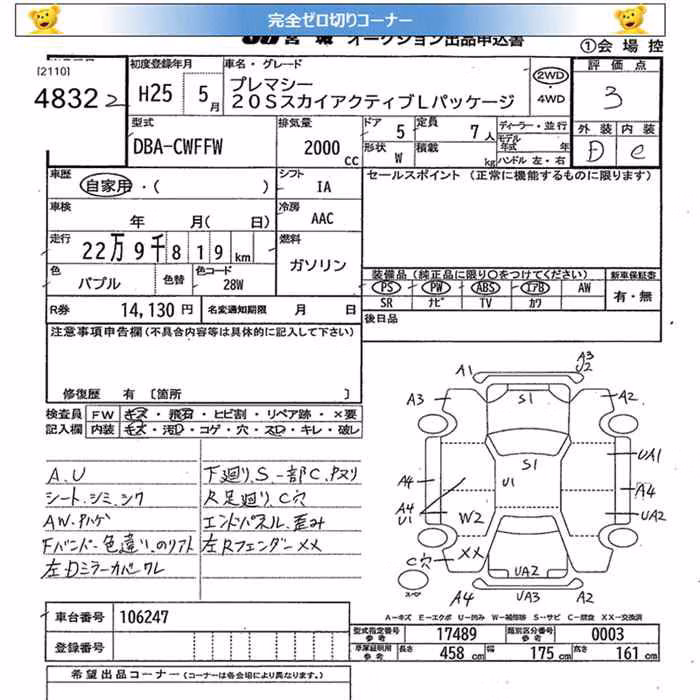 完全ゼロ切りコーナー
JU宮城 オークション出品申込書
①会場控
[2110]
4832 2
初度登録年月
H25 5月
車名・グレード
プレマシー
20SスカイアクティブLパッケージ
2WD
4WD
評価点
3
型式
DBA-CWFFW
排気量
2000 cc
ドア 5
定員 7人
形状 W
積載 kg
ディーラー・並行
モデル年式 年
ハンドル 左・右
外装 内装
D C
車歴
自家用・( )
シフト
IA
セールスポイント (正常に機能するものに限ります)
車検
年 月( 日)
冷房
AAC
走行
22万9千819km
燃料
ガソリン
色
パプル
色替
色コード
28W
装備品(純正品に限り〇をつけてください)
新車保証書
PS PW ABS エアB AW
SR ナビ TV カワ
有・無
R券 14,130円
名変通知期限 月 日
後日品
注意事項申告欄(不具合内容等は具体的に記入して下さい)
修復歴 有 〔箇所 〕
検査員 FW キズ・飛石・ヒビ割・リペア跡・×要
記入欄 内装 キズ・汚D・コゲ・穴・スD・キレ・破レ
A.U
シート.シミ.シワ
AW.ハゲ
Fバンパー色違い.のリフト
左Dミラーカバーワレ
下廻り.S.一部C.Pヌリ
R足廻り.C穴
エンドパネル.歪み
左Rフェンダー××
A1
A3
U2
A3
S1
A2
S1
UA1
U1
A4
A4
A4
U1
W2
UA2
C穴
××
UA2
スペア
A4
UA3
A2
A－キズ E－エクボ U－凹み W－補修跡 S－サビ C－腐食 XX－交換済
車台番号 106247
登録番号
型式指定番号 参考 17489
類別区分番号 参考 0003
車庫証明用 参考 長さ 458 cm 幅 175 cm 高さ 161 cm
希望出品コーナー (コーナーは各会場により異なります。)